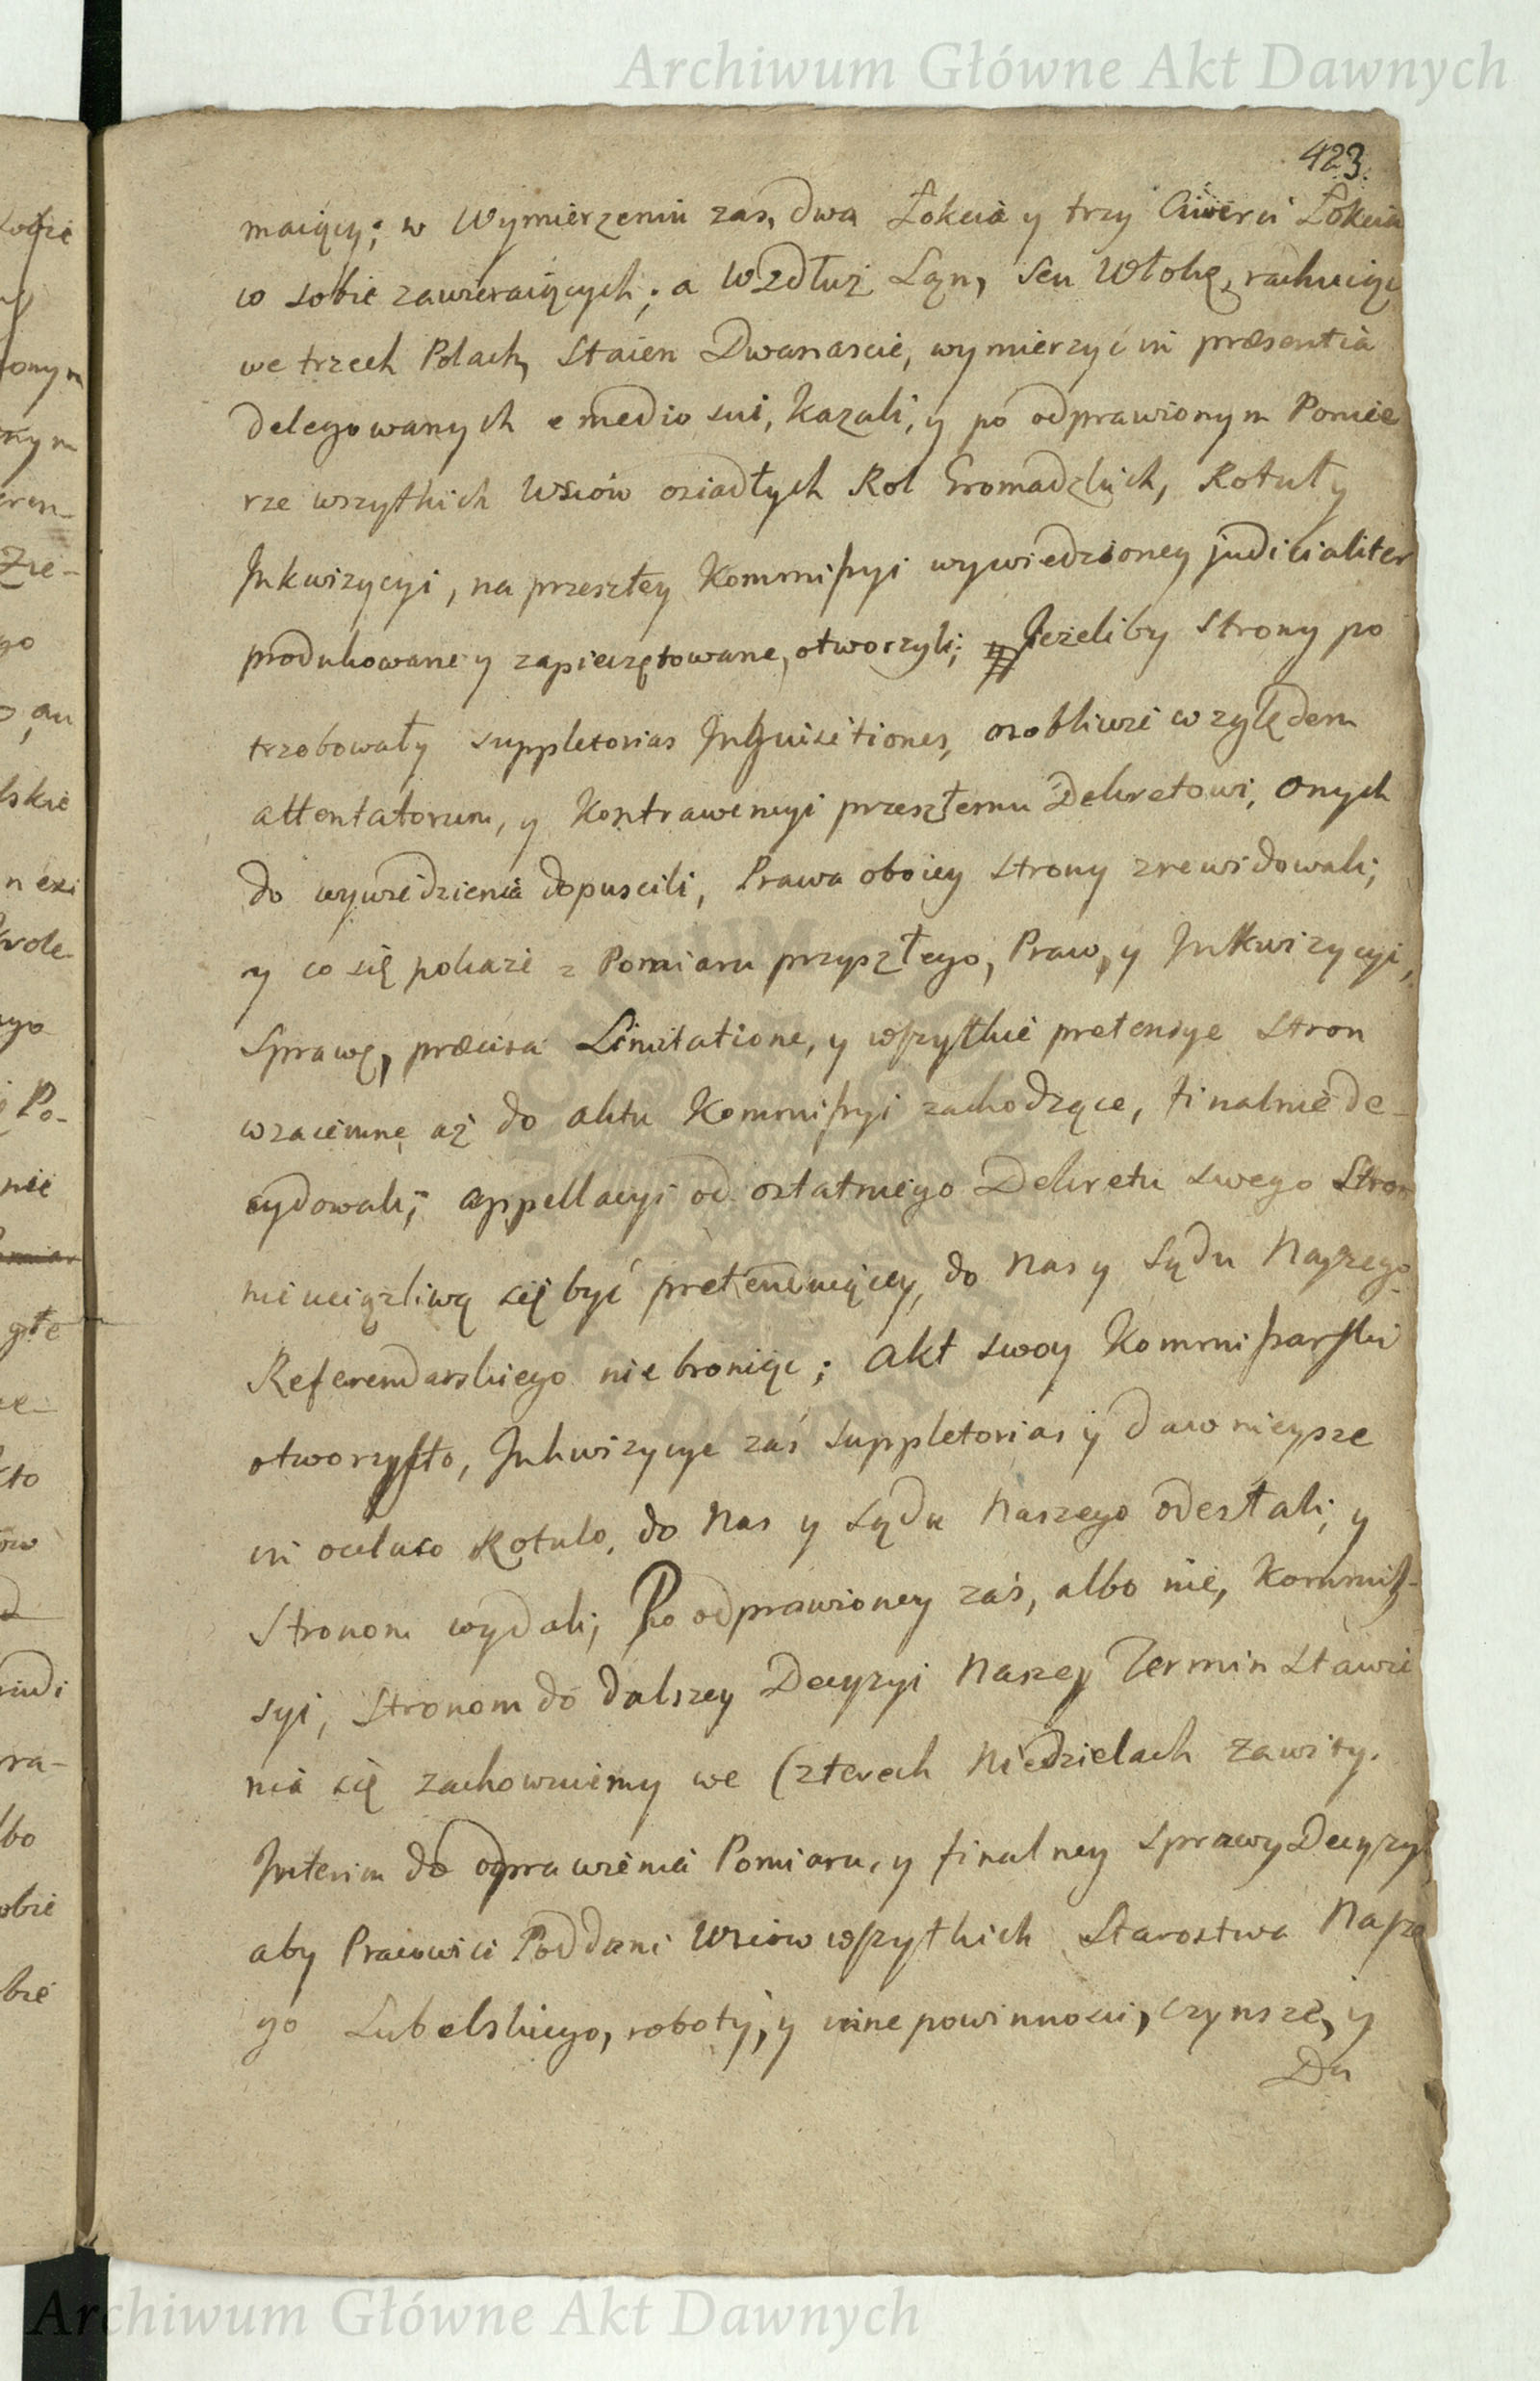 Archiwum Główne Akt Dawnych
423.
maiący; w Wymierzeniu zas, dwa Łokcia y trzy Cwierci Łokcia
w sobie zawieraiących; a Wzdłuż Łan, seu Włokę, rachuiąc
we trzech Polach, Staien Dwanascie, wymierzyć in præsentia
delegowanych e medio sui, kazali, y po odprawionym Pomie
rze wszytkich Wsiow osiadłych Rol Gromadzkich, Rotuły
Inkwizycyi, na przeszłey Kommissyi wywiedzioney judicialiter
produkowane y zapieczętowane, otworzyli; Jeżeliby Strony po
trzobowały suppletorias Inquisitiones, osobliwie względem
attentatorum, y Kontrawencyi przeszłemu Dekretowi, onych
do wywiedzienia dopuscili, Prawa oboiey Strony zrewidowali;
y co się pokaże z Pomiaru przyszłego, Praw, y Inkwizycyi,
Sprawę, præcisa Limitatione, y wszytkie pretensye Stron
wzaiemne aż do aktu Kommissyi zachodzące, finalnie de-
cydowali; appellacyi od ostatniego Dekretu swego Stron
nie uciązliwą się być pretenduiącey, do Nas y Sądu Naszego
Referendarskiego nie broniąc; Akt swoy Kommissarski
otworzysto, Inkwizycye zaś suppletorias y dawnieysze
in ocluso Rotulo, do Nas y Sądu Naszego odesłali, y
Stronom wydali; Po odprawioney zaś, albo nie, Kommis-
syi, Stronom do dalszey Decyzyi Naszey Termin stawie
nia się zachowuiemy we Czterech Niedzielach Zawity.
Interim do oprawienia Pomiaru, y finalney Sprawy Decyzyi,
aby Pracowici Poddani Wsiow wszytkich Starostwa Nasze
go Lubelskiego, roboty, y inne powinnosci, czynsze, y
Da
Archiwum Główne Akt Dawnych